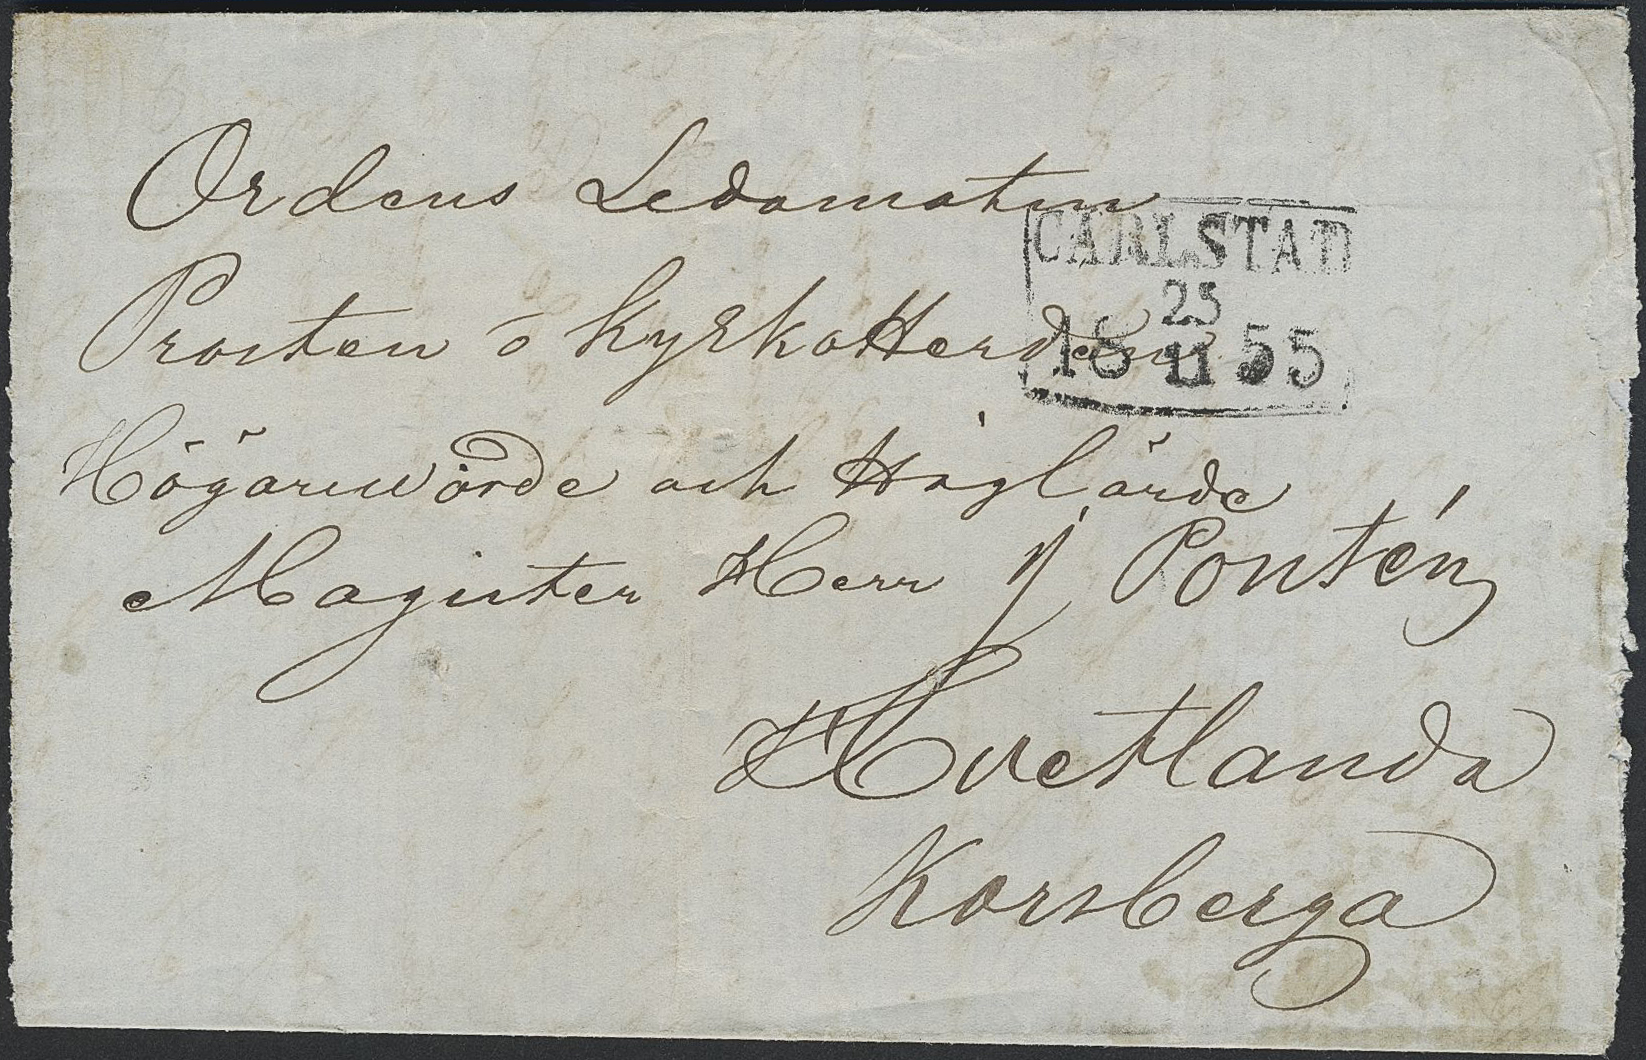 Ordens Ledamoten
Prosten o KyrkoHerden
CARLSTAD
25
18 11 55
Högärewörde och Höglärde
Magister Herr J Pontén
Hvetlanda
Korsberga